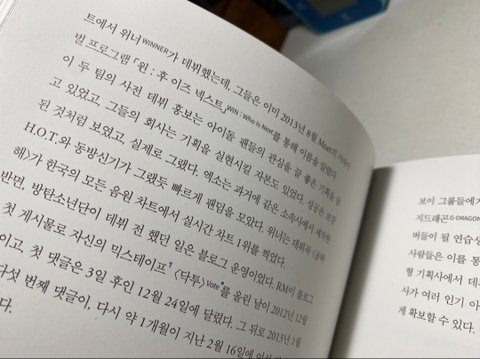 트에서 위너WINNER가 데뷔했는데, 그들은 이미 2013년 8월 Mnet의
벌 프로그램 『윈 : 후 이즈 넥스트』WIN : Who is Next를 통해 이름을 알렸다.
이 두 팀의 사전 데뷔 홍보는 아이돌 팬들의 관심을 끌 좋은 기획을
고 있었고, 그들의 회사는 기획을 실현시킬 자본도 있었다. 성공은
된 것처럼 보였고, 실제로 그랬다. 엑소는 과거에 같은 소속사에서 데뷔한
H.O.T.와 동방신기가 그랬듯 빠르게 팬덤을 모았다. 위너는 데뷔곡
해〉가 한국의 모든 음원 차트에서 실시간 차트 1위를 찍었다.
반면, 방탄소년단이 데뷔 전 했던 일은 블로그 운영이었다. RM이 블로그
첫 게시물로 자신의 믹스테이프1 〈닥투〉Vote*를 올린 날이 2012년 12월
이고, 첫 댓글은 3일 후인 12월 24일에 달렸다. 그 뒤로 2013년 1월
다섯 번째 댓글이, 다시 약 1개월이 지난 2월 16일에
다.
보이 그룹들에게
지드래곤G-DRAGON
버들이 될 연습생
사람들은 이를 통
형 기획사에서 데
사가 여러 인기 아
게 확보할 수 있다.